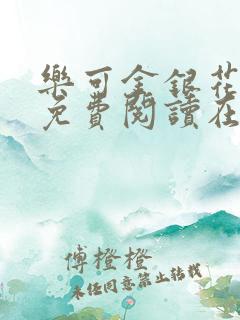 樂可金銀花
免費閱讀在
傅橙橙
未经同意禁止转载